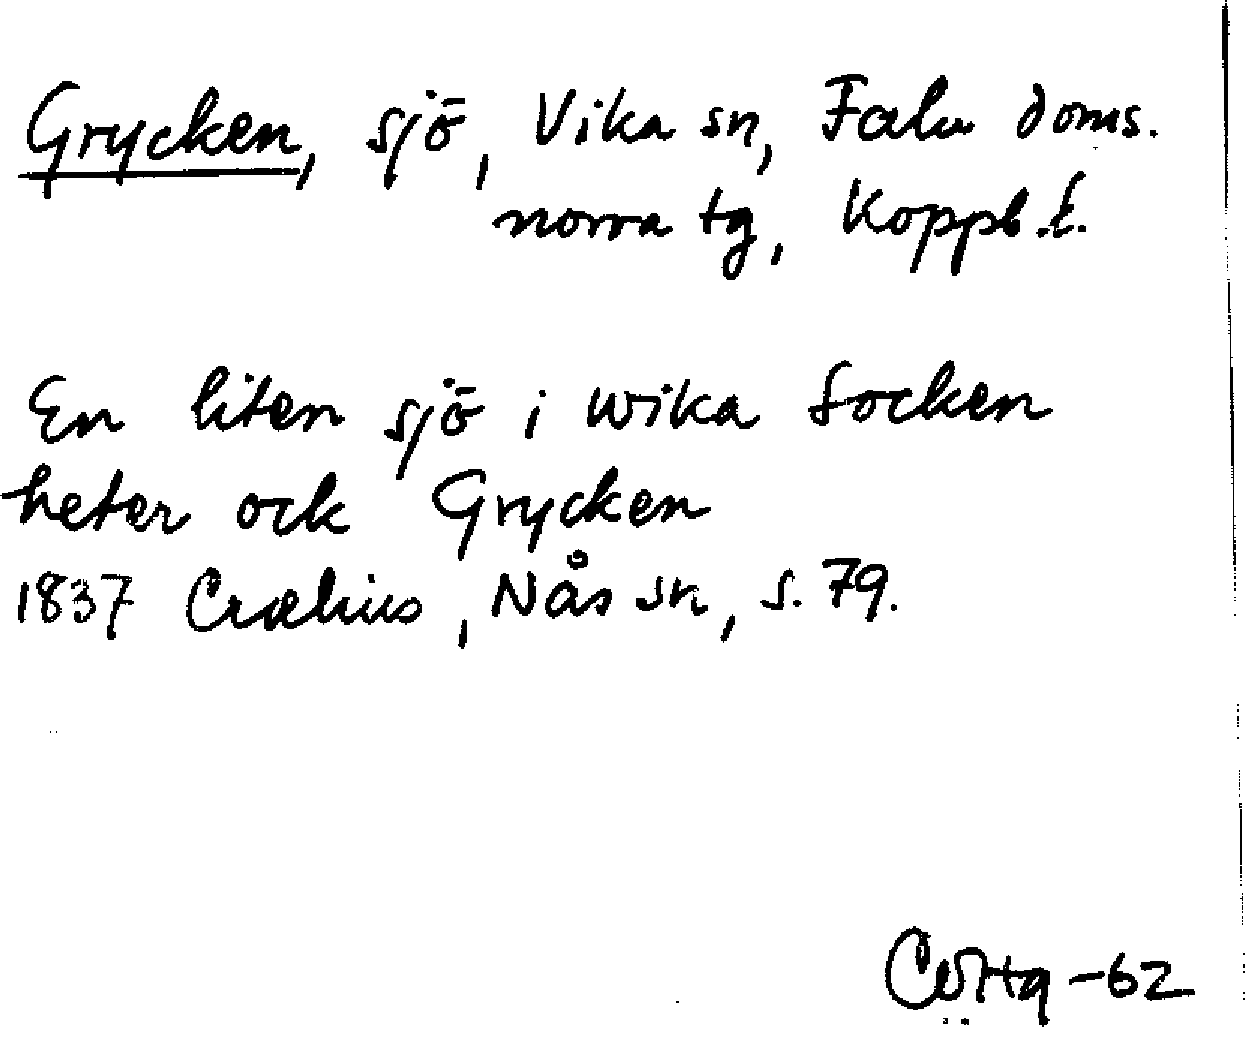 Grycken, sjö, Vika sn, Falu doms.
norra tg, Koppb.l.
En liten sjö i Wika Socken
heter ock Grycken
1837 Crælius, Nås sn, s. 79.
-62